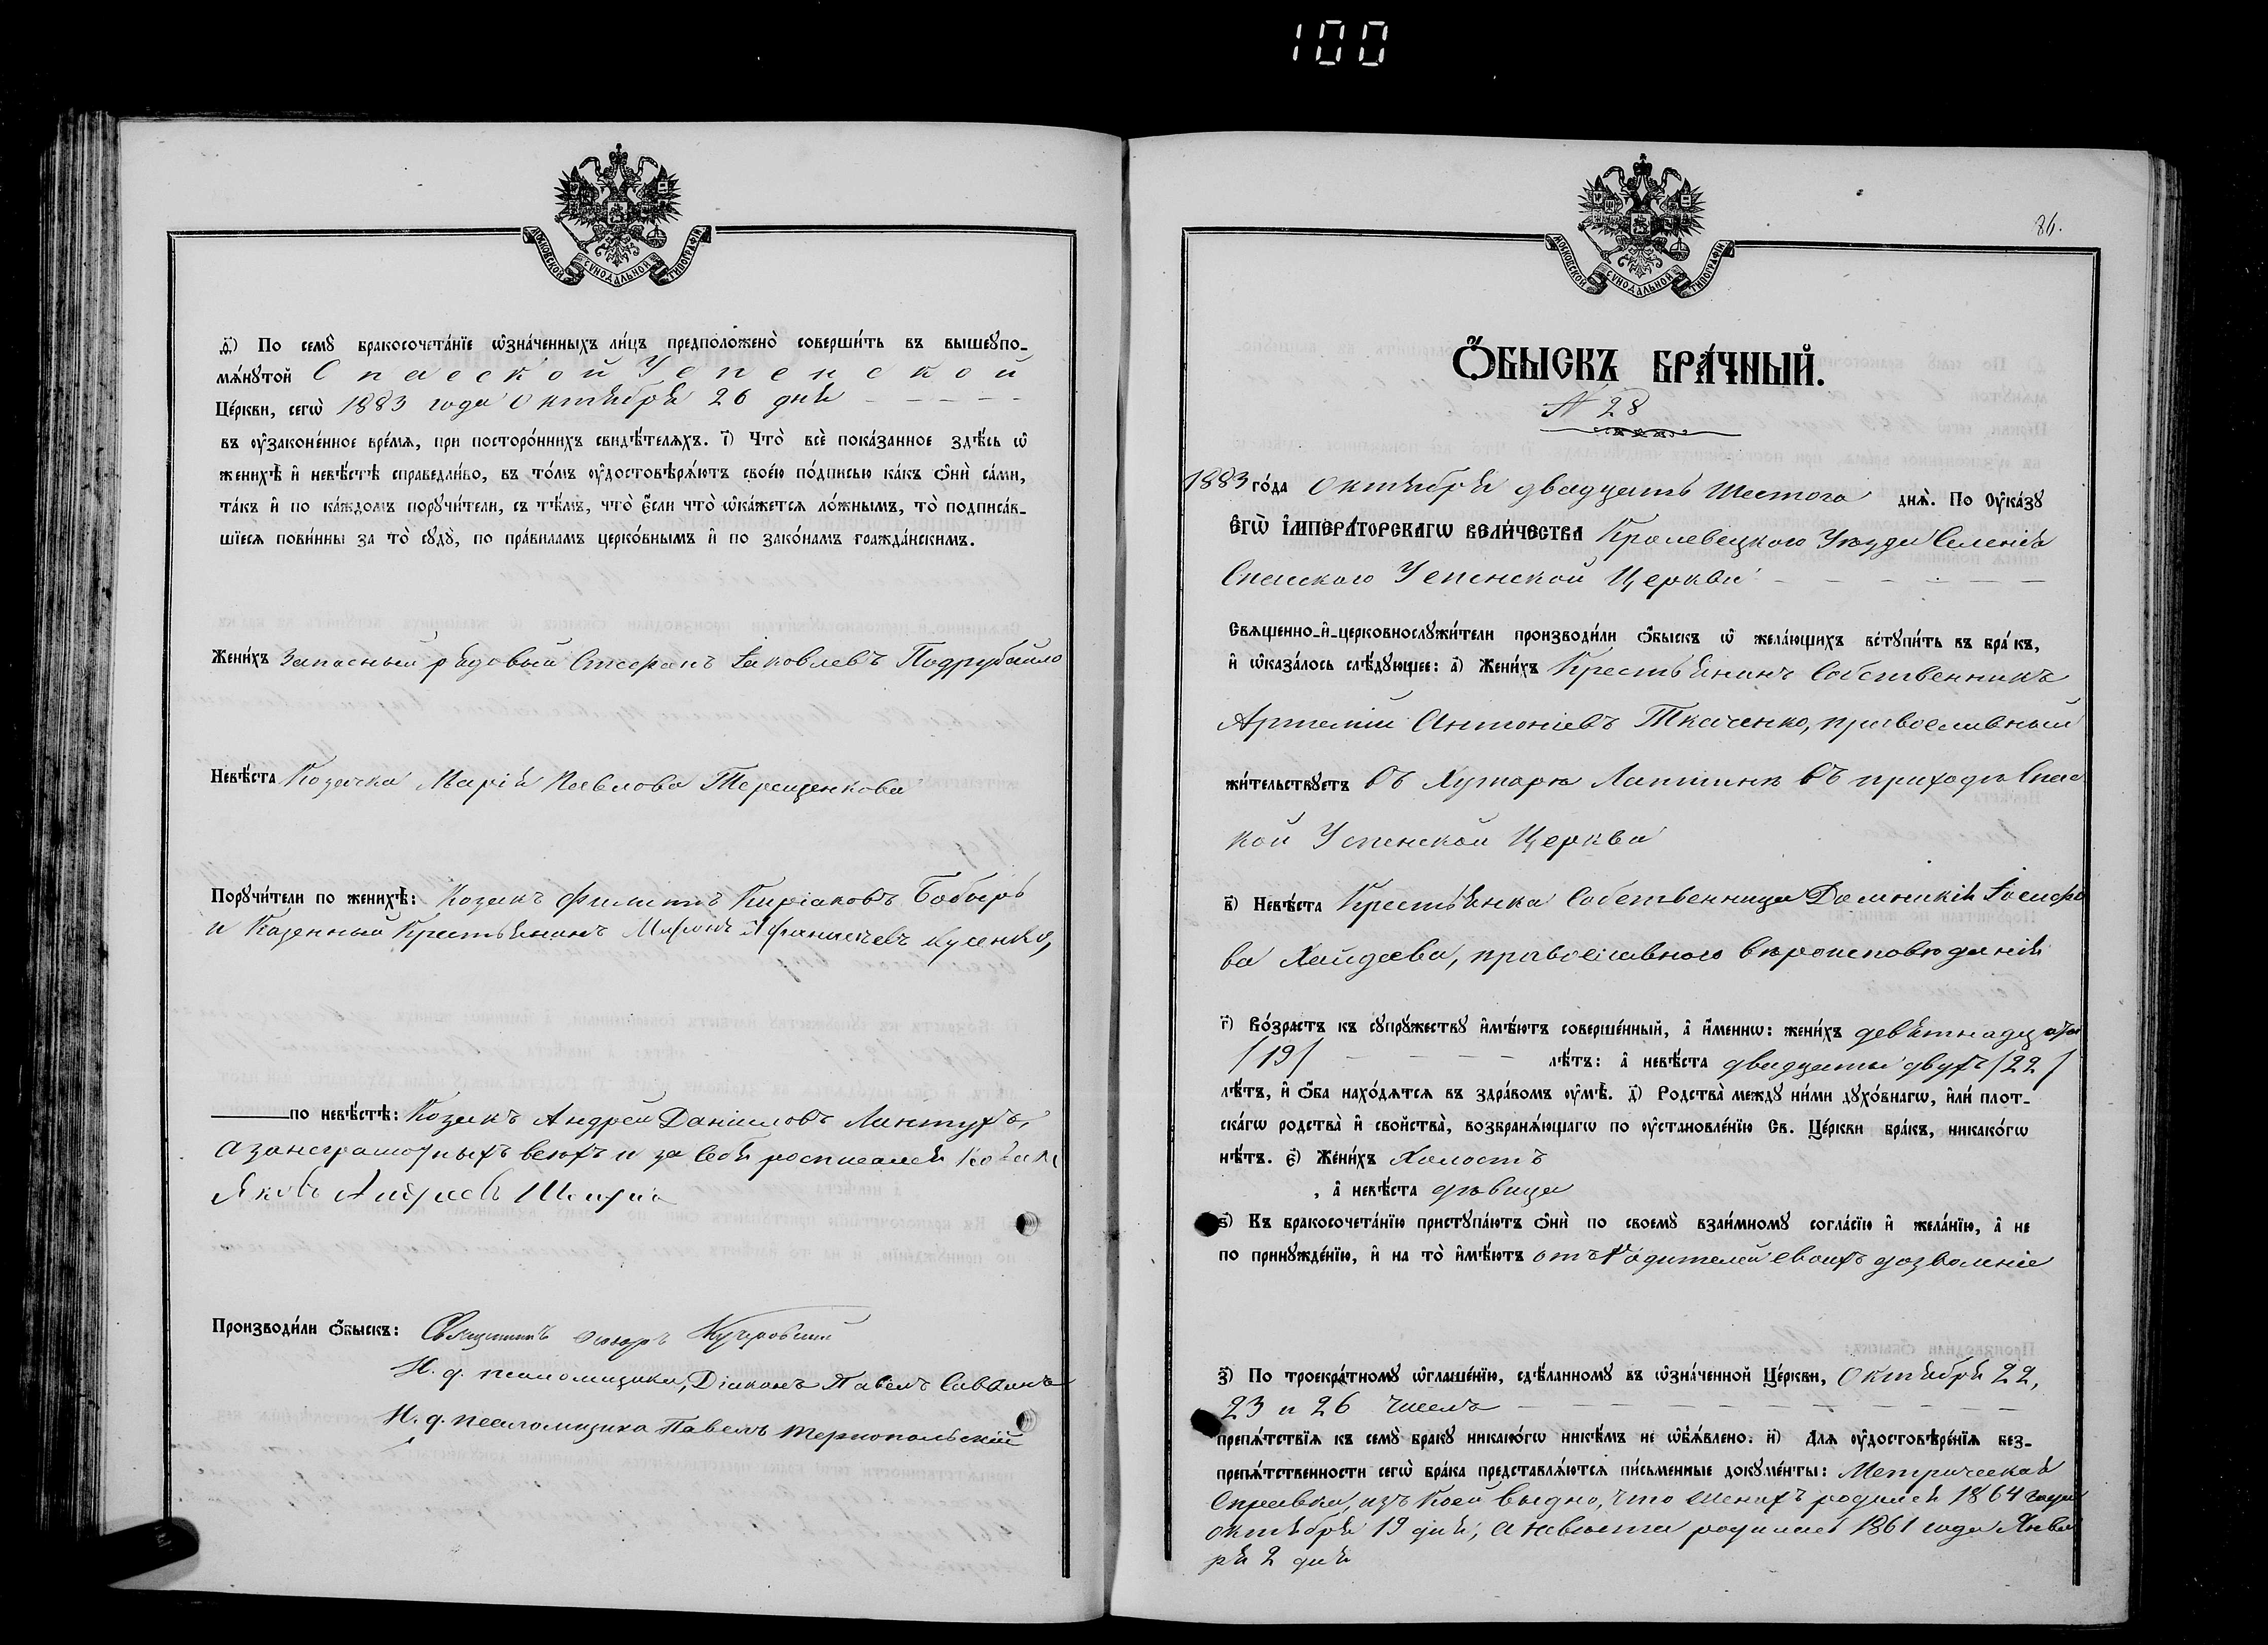 100
МОСКОВСКОЙ СѴНОДАЛЬНОЙ ТИПОГРАФІИ
ѳ҃) По семꙋ̀ бракосочета́нїе ѡ҆зна́ченныхъ ли́цъ предположено̀ соверши́ть въ вышеꙋпо-
мѧ́нꙋтой Спасской Успенской
Це́ркви, сегѡ̀ 1883 года Октября 26 дня
въ ᲂу҆зако́ненное вре́мѧ, при посторо́ннихъ свидѣ́телѧхъ. і҃) Что̀ всѐ пока́занное здѣ́сь ѡ҆
женихѣ̀ и҆ невѣ́стѣ справедли́во, въ то́мъ ᲂу҆достовѣрѧ́ютъ свое́ю по́дписью ка́къ ѻ҆нѝ са́ми,
та́къ и҆ по ка́ждомъ порꙋчи́тели, съ тѣ́мъ, что̀ є҆́сли что̀ ѡ҆ка́жетсѧ ло́жнымъ, то̀ подписа́в-
шїесѧ пови́нны за то̀ сꙋдꙋ̀, по пра́виламъ церко́внымъ и҆ по зако́намъ гражда́нскимъ.
Жени́хъ Запасный рядовый Стефанъ Іаковлевъ Подрубайло
Невѣ́ста Козачка Марія Павлова Терещенкова
Порꙋчи́тели по женихѣ̀: Козакъ Филиппъ Киріаковъ Бобырь
и Казенный Крестьянинъ Мирон Афанасіевъ Кусенко,
по невѣ́стѣ: Козакъ Андрей Даніиловъ Линтухъ,
а за неграмотныхъ всехъ и за себя росписался Козак
Яковъ Андреев
Производи́ли ѻ҆́быскъ: Священникъ Кучеровский
И. д. псаломщика, Діаконъ Павелъ Саввинъ
И. д. псаломщика Павелъ Тернопольскій
МОСКОВСКОЙ СѴНОДАЛЬНОЙ ТИПОГРАФІИ
86.
Ѻ҆́БЫСКЪ БРА́ЧНЫЙ.
N 28
1883 го́да Октября двадцать шестого днѧ̀. По ᲂу҆ка́зꙋ
Є҆гѡ̀ И҆мпера́торскагѡ Вели́чества Кролевецкого Уѣзда Селенія
Спасского Успенской Церкви
Свѧще́нно-и҆-церковнослꙋжи́тели производи́ли ѻ҆́быскъ ѡ҆ жела́ющихъ встꙋпи́ть въ бра́къ,
и҆ ѡ҆каза́лось слѣ́дꙋющее: а҃) Жени́хъ Крестьянинъ Собственникъ
Артемій Антоніевъ Ткаченко, православный
жи́тельствꙋетъ въ Хуторѣ Лапшинѣ въ приходѣ Спас
кой Успенской Церкви
в҃) Невѣ́ста Крестьянка Собственница Домникія Іосифо
ва Хайдаева, православного вѣроисповѣданія
г҃) Во́зрастъ къ сꙋпрꙋ́жествꙋ и҆мѣ́ютъ соверше́нный, а҆ и҆́меннѡ: жени́хъ девятнадцати
/19/ лѣ́тъ: а҆ невѣ́ста двадцати двухъ /22/
лѣ́тъ, и҆ ѻ҆́ба нахо́дѧтсѧ въ здра́вомъ ᲂу҆мѣ̀. д҃) Родства̀ междꙋ̀ ни́ми дꙋхо́внагѡ, и҆лѝ плот-
ска́гѡ родства̀ и҆ свойства̀, возбранѧ́ющагѡ по ᲂу҆становле́нїю Св. Це́ркви бра́къ, никако́гѡ
нѣ́тъ. є҃) Жени́хъ Холостъ
, а҆ невѣ́ста дѣвица
ѕ҃) Къ бракосочета́нїю пристꙋпа́ютъ ѻ҆нѝ по своемꙋ̀ взаи́мномꙋ согла́сїю и҆ жела́нїю, а҆ не
по принꙋжде́нїю, и҆ на то̀ и҆мѣ́ютъ отъ Родителей своихъ дозволеніе
з҃) По троекра́тномꙋ ѡ҆глаше́нїю, сдѣ́ланномꙋ въ ѡ҆зна́ченной Це́ркви, Октября 22,
23 и 26 числъ
препѧ́тствїѧ къ семꙋ̀ бра́кꙋ никако́гѡ никѣ́мъ не ѡ҆б̾ѧ́влено. и҃) Длѧ ᲂу҆достовѣре́нїѧ без-
препѧ́тственности сегѡ̀ бра́ка представлѧ́ютсѧ пи́сьменные докꙋме́нты: Метрическая
Справка, изъ коей выдно, что женихъ родился 1864 года
октября 19 дня, а невеста родилась 1861 года Янва
ря 2 дня